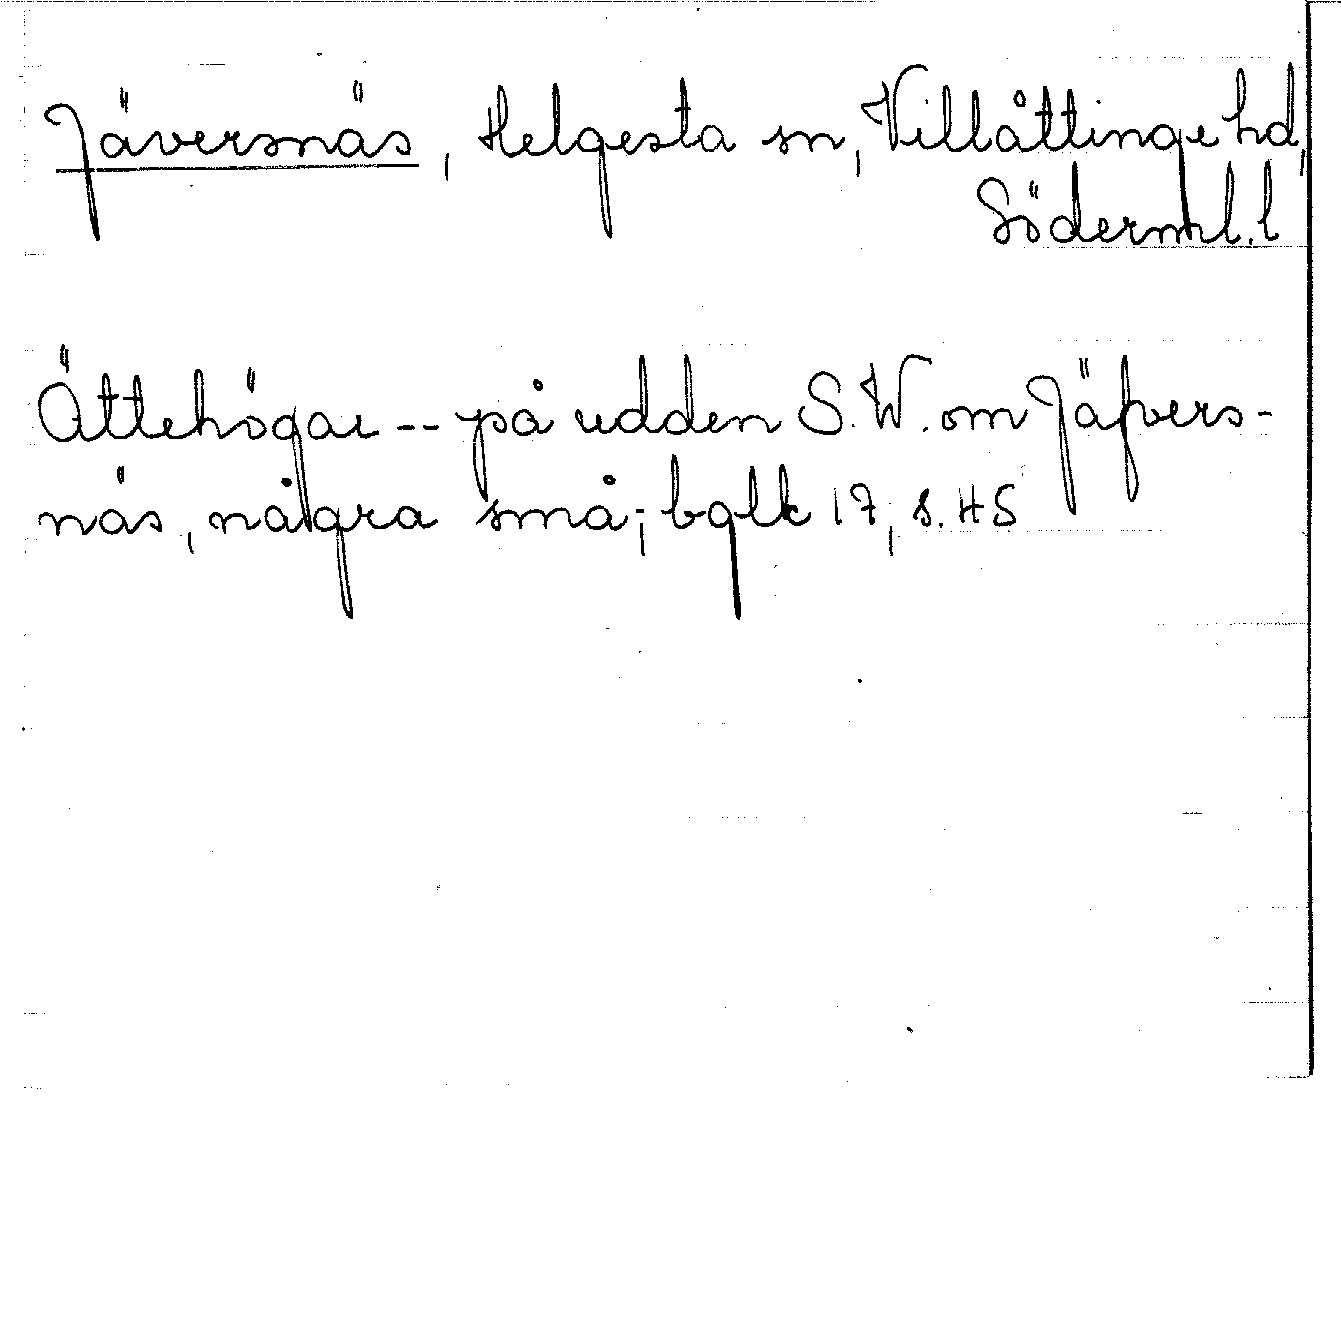 Jäversnäs, Helgesta sn, Villåttinge hd,
Söderml. l
Ättehögar -- på udden S.W. om Jäfvers-
näs, några små; bglk 17, s. 45